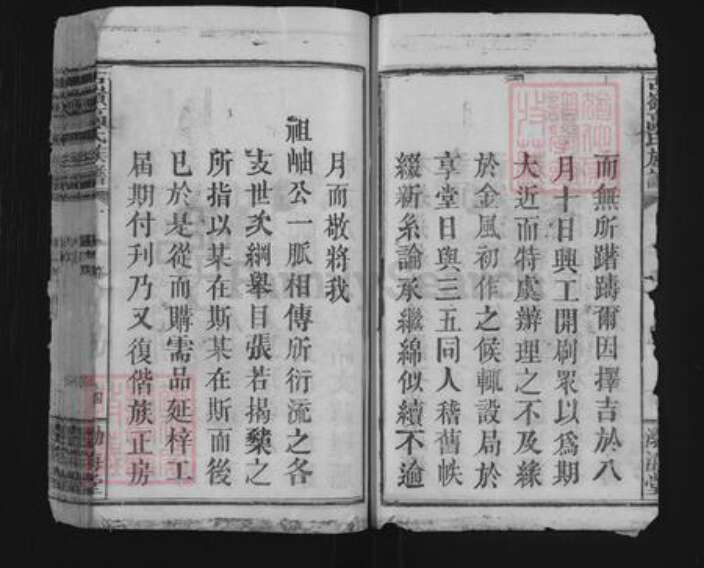 而無所躊躇爾因擇吉於八
月十日興工開刷眾以為期
大近而特虞辦理之不及緣
於金風初作之候輒設局於
享堂日與三五同人稽舊帙
綴新糸論承繼綿似續不逾
月而敬將我
祖岫公一脈相傳所衍流之各
支世次綱舉目張若揭櫫之
所指以某在斯某在斯而後
已於是從而購需品延梓工
屆期付刊乃又復偕族正房
渤海堂